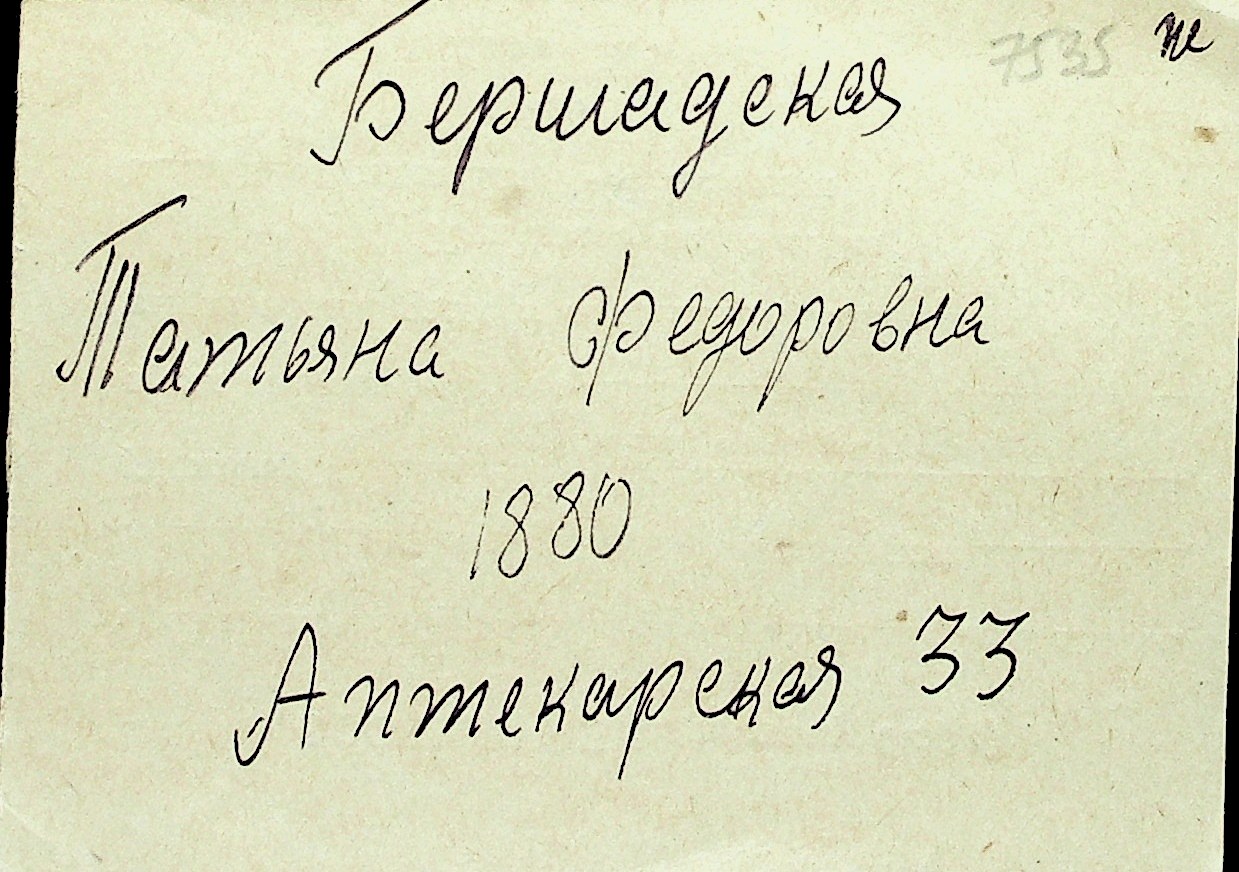 7535 же
Бершадская
Татьяна Федоровна
1880
Аптекарская 33